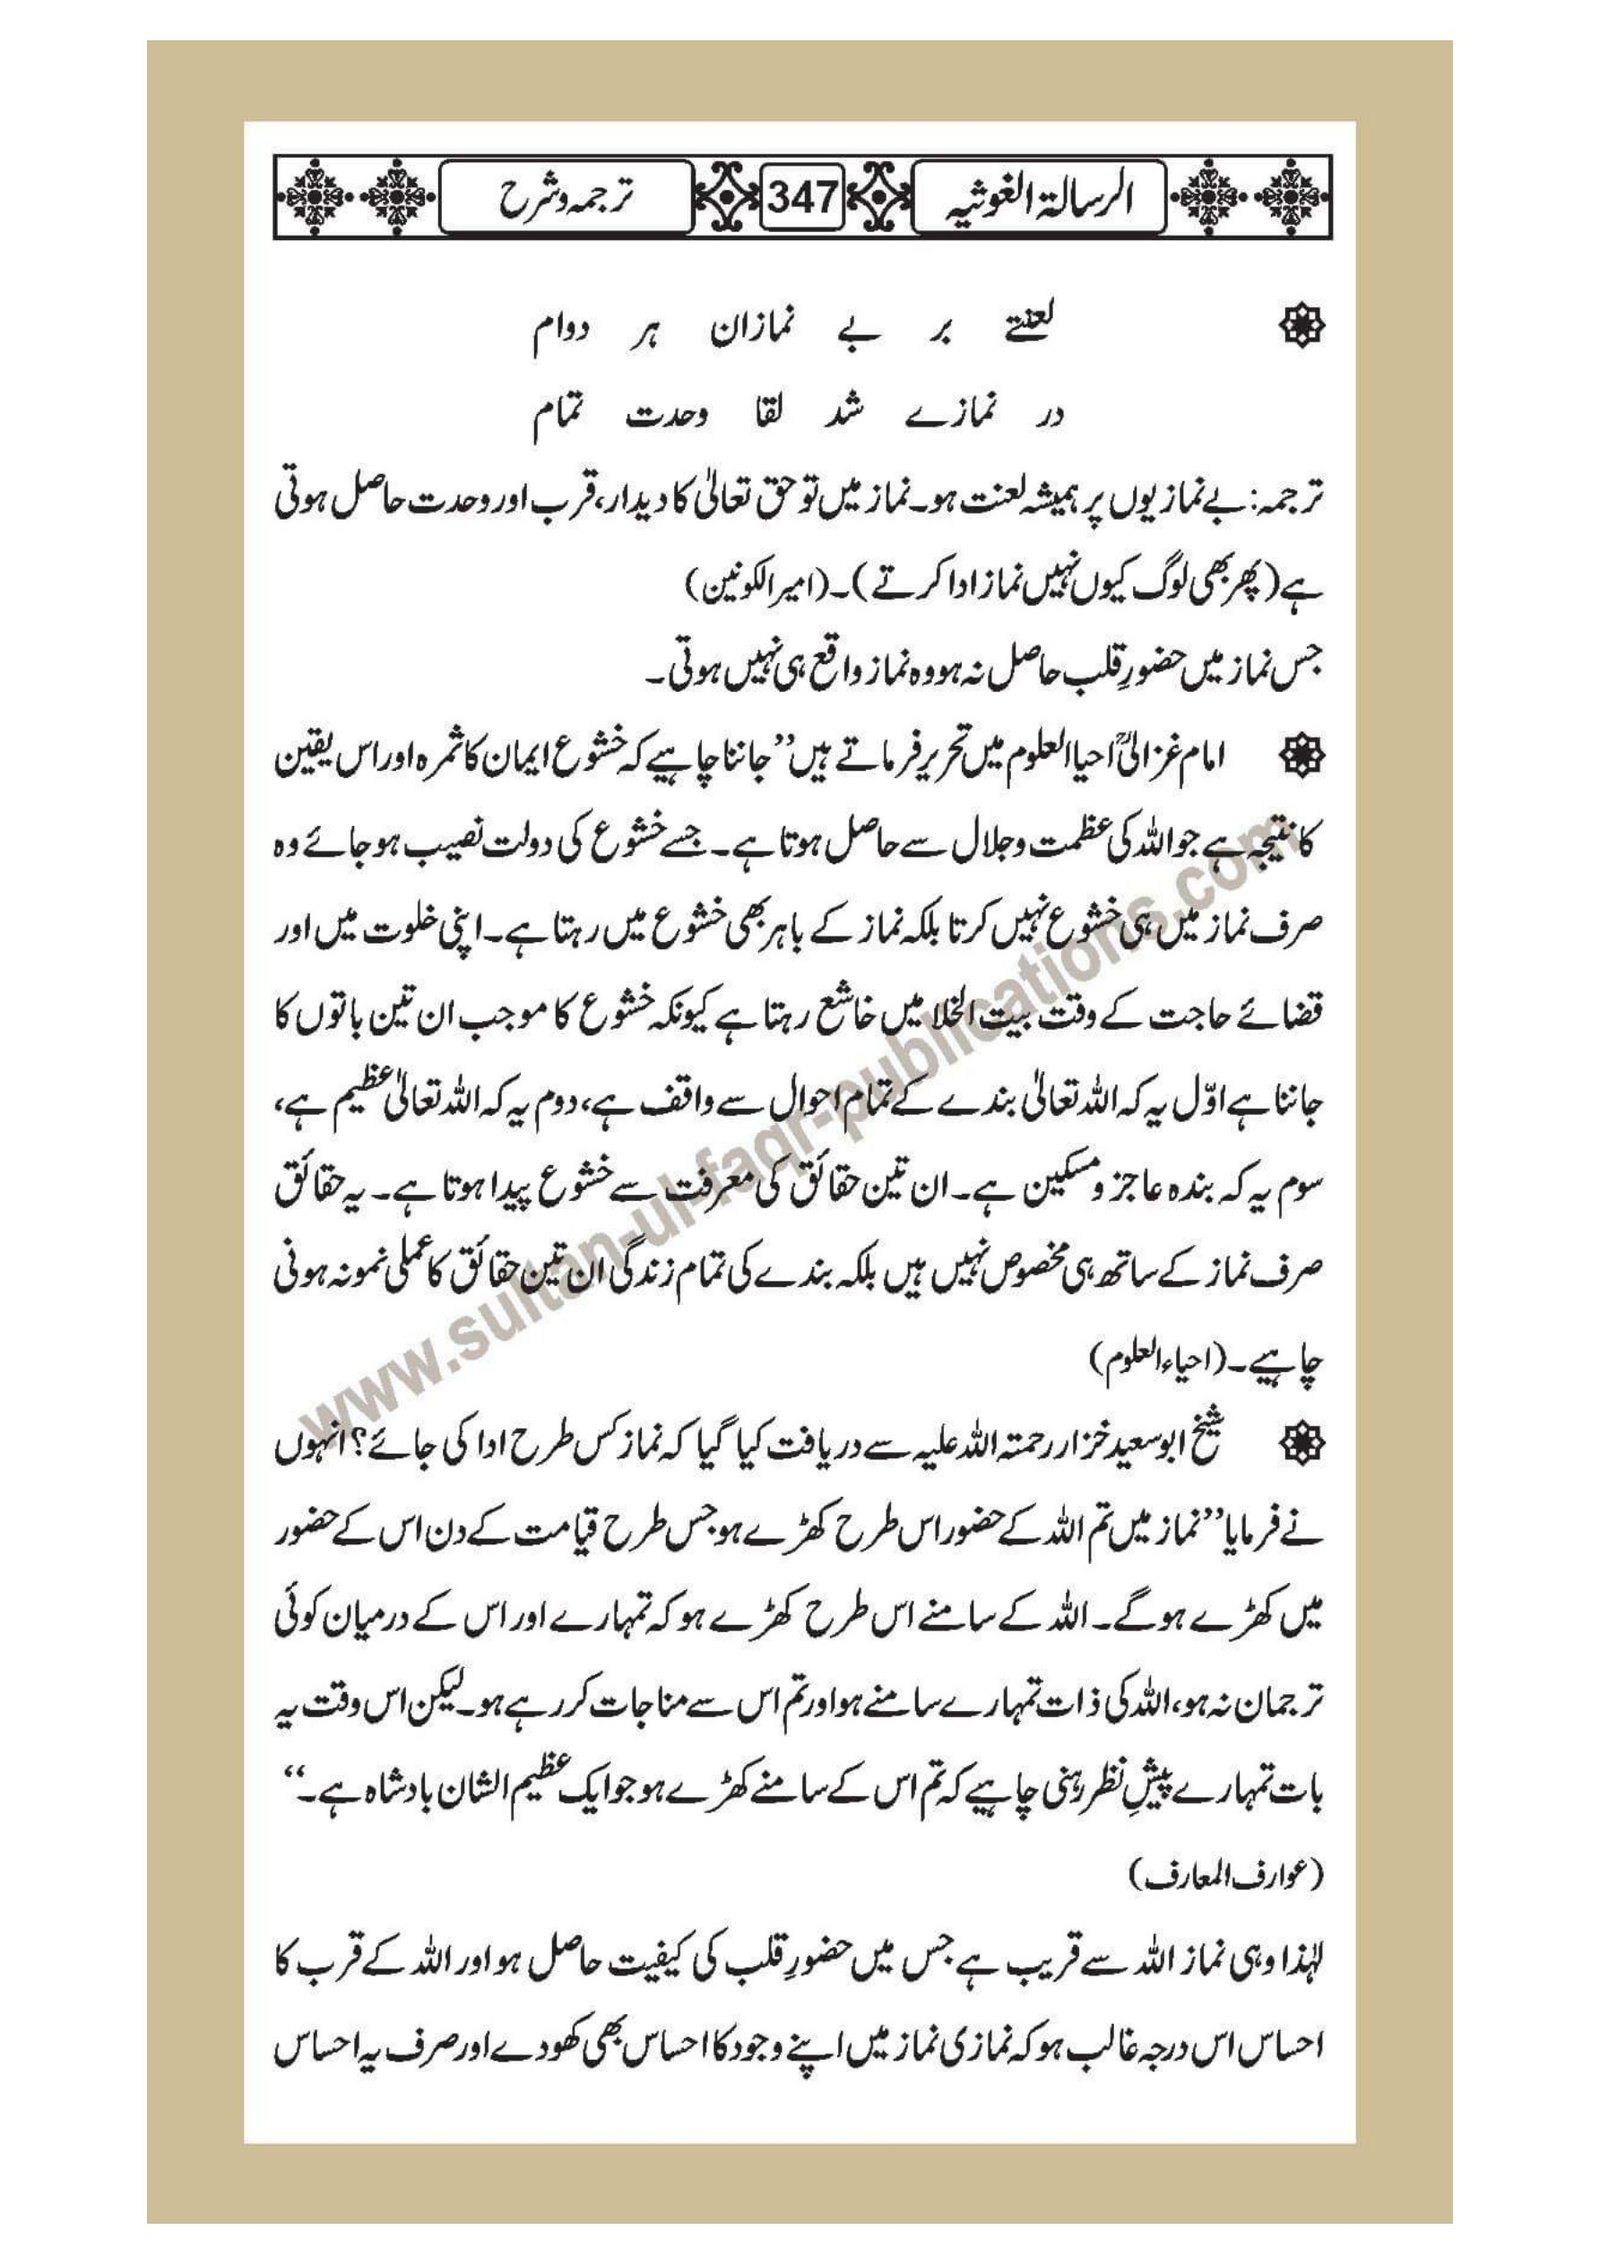 الرسالۃ الغوثیہ 347 ترجمہ و شرح
لعنتے بر بے نمازان ہر دوام
در نمازے شد لقا وحدت تمام
ترجمہ: بے نمازیوں پر ہمیشہ لعنت ہو۔ نماز میں تو حق تعالیٰ کا دیدار، قرب اور وحدت حاصل ہوتی
ہے (پھر بھی لوگ کیوں نہیں نماز ادا کرتے)۔ (امیر الکونین)
جس نماز میں حضورِ قلب حاصل نہ ہو وہ نماز واقع ہی نہیں ہوتی۔
امام غزالیؒ احیا العلوم میں تحریر فرماتے ہیں ’’جاننا چاہیے کہ خشوع ایمان کا ثمرہ اور اس یقین
کا نتیجہ ہے جو اللہ کی عظمت و جلال سے حاصل ہوتا ہے۔ جسے خشوع کی دولت نصیب ہو جائے وہ
صرف نماز میں ہی خشوع نہیں کرتا بلکہ نماز کے باہر بھی خشوع میں رہتا ہے۔ اپنی خلوت میں اور
قضائے حاجت کے وقت بیت الخلا میں خاشع رہتا ہے کیونکہ خشوع کا موجب ان تین باتوں کا
جاننا ہے اوّل یہ کہ اللہ تعالیٰ بندے کے تمام احوال سے واقف ہے، دوم یہ کہ اللہ تعالیٰ عظیم ہے،
سوم یہ کہ بندہ عاجز و مسکین ہے۔ ان تین حقائق کی معرفت سے خشوع پیدا ہوتا ہے۔ یہ حقائق
صرف نماز کے ساتھ ہی مخصوص نہیں ہیں بلکہ بندے کی تمام زندگی ان تین حقائق کا عملی نمونہ ہونی
چاہیے۔ (احیاء العلوم)
شیخ ابو سعید خزار رحمتہ اللہ علیہ سے دریافت کیا گیا کہ نماز کس طرح ادا کی جائے؟ انہوں
نے فرمایا ’’نماز میں تم اللہ کے حضور اس طرح کھڑے ہو جس طرح قیامت کے دن اس کے حضور
میں کھڑے ہو گے۔ اللہ کے سامنے اس طرح کھڑے ہو کہ تمہارے اور اس کے درمیان کوئی
ترجمان نہ ہو، اللہ کی ذات تمہارے سامنے ہو اور تم اس سے مناجات کر رہے ہو۔ لیکن اس وقت یہ
بات تمہارے پیشِ نظر رہنی چاہیے کہ تم اس کے سامنے کھڑے ہو جو ایک عظیم الشان بادشاہ ہے۔‘‘
(عوارف المعارف)
لہٰذا وہی نماز اللہ سے قریب ہے جس میں حضورِ قلب کی کیفیت حاصل ہو اور اللہ کے قرب کا
احساس اس درجہ غالب ہو کہ نمازی نماز میں اپنے وجود کا احساس بھی کھو دے اور صرف یہ احساس
www.sultan-ul-faqr-publications.com